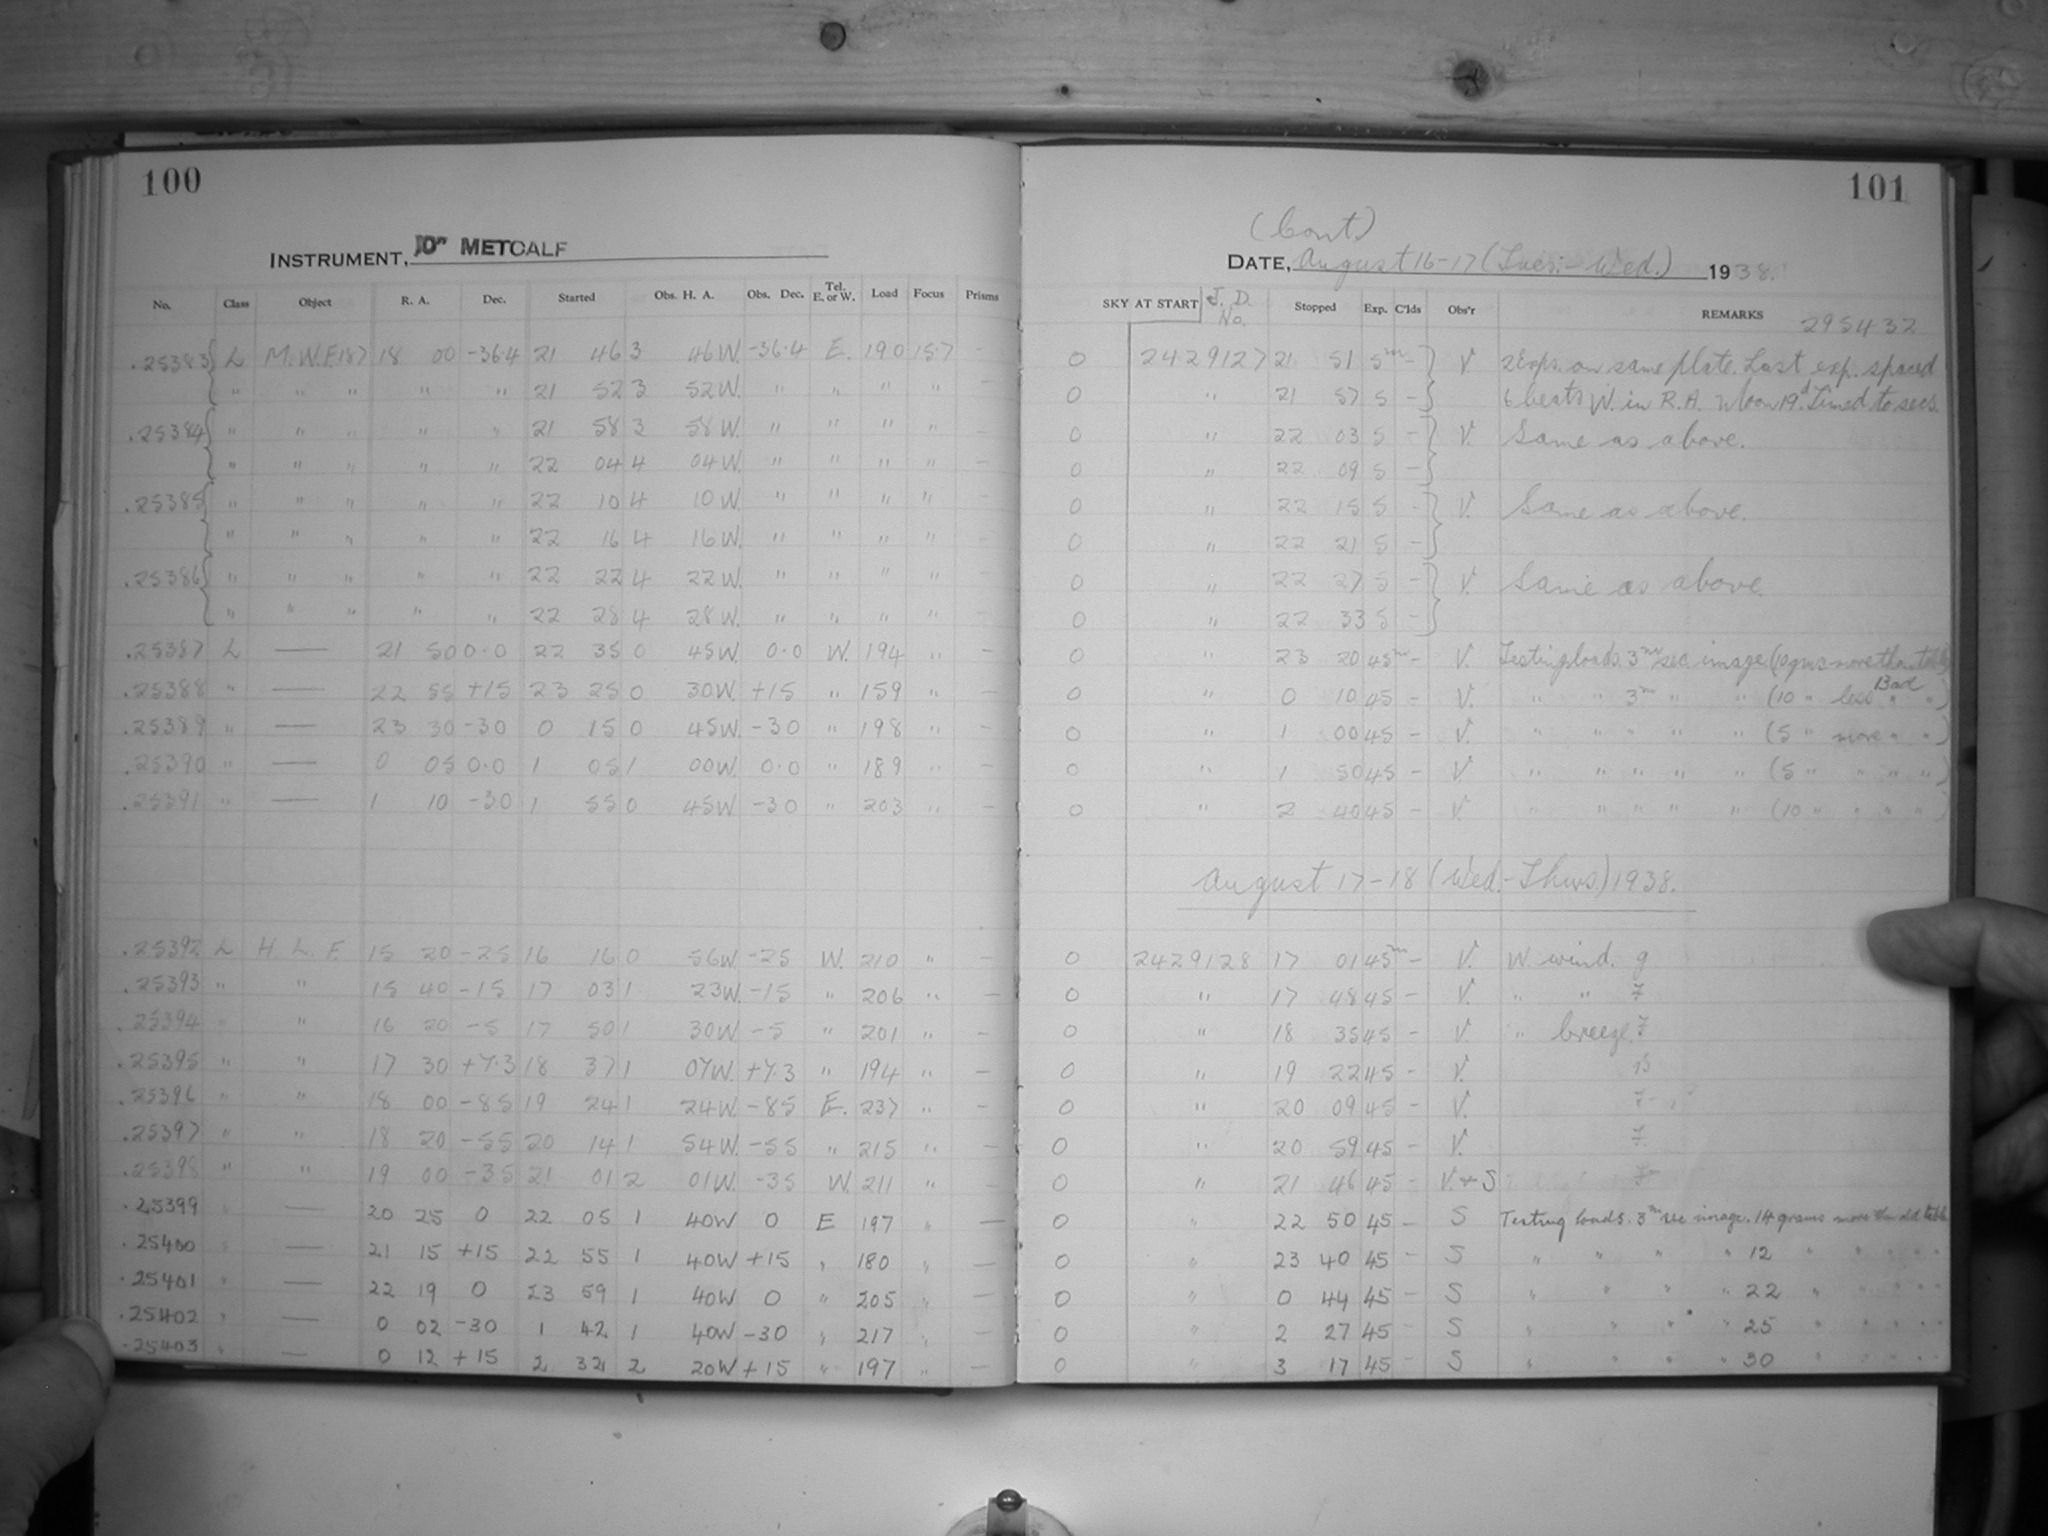 100
INSTRUMENT, 10" METCALF
No. Class Object R. A. Dec. Started Obs. H. A. Obs. Dec. Tel. E. or W. Load Focus Prisms
.25383 L M.W.F.187 18 00 -36.4 21 46 3 46W. -36.4 E. 190 15.7 -
" " " " " 21 52 3 52W. " " " "
.25384 " " " " " 21 58 3 58W. " " " "
" " " " " 22 04 4 04W. " " " " -
.25385 " " " " " 22 10 4 10W. " " " "
" " " " " 22 16 4 16W. " " " "
.25386 " " " " " 22 22 4 22W. " " " "
" " " " " 22 28 4 28W. " " " " -
.25387 L — 21 50 0.0 22 35 0 45W. 0.0 W. 194 " -
.25388 " — 22 55 +15 23 25 0 30W. +15 " 159 " -
.25389 " — 23 30 -30 0 15 0 45W. -30 " 198 " -
.25390 " — 0 05 0.0 1 05 1 00W. 0.0 " 189 " -
.25391 " — 1 10 -30 1 55 0 45W -30 " 203 " -
.25392 L H L. F 15 20 -25 16 16 0 56W -25 W. 210 " -
.25393 " " 15 40 -15 17 03 1 23W. -15 " 206 " -
.25394 " " 16 20 -5 17 50 1 30W -5 " 201 " -
.25395 " " 17 30 +7.3 18 37 1 07W. +7.3 " 194 " -
.25396 " " 18 00 -85 19 24 1 24W. -85 E. 237 " -
.25397 " " 18 20 -55 20 14 1 54W. -55 " 215 " -
.25398 " " 19 00 -35 21 01 2 01W. -35 W. 211 " -
.25399 " — 20 25 0 22 05 1 40W 0 E 197 " -
.25400 " — 21 15 +15 22 55 1 40W +15 " 180 " -
.25401 " — 22 19 0 23 59 1 40W 0 " 205 " -
.25402 " — 0 02 -30 1 42 1 40W -30 " 217 " -
.25403 " — 0 12 +15 2 32 2 20W +15 " 197 " -
101
(Cont.)
DATE, August 16-17 (Tues.-Wed.) 1938.
SKY AT START J. D. No. Stopped Exp. C'lds Obs'r REMARKS 295432
0 2429127 21 51 5m - V. 2 Exps. on same plate. Last exp. spaced
0 " 21 57 5 - 6 beats W. in R.A. Moon 19d. Timed to secs.
0 " 22 03 5 - V. Same as above.
0 " 22 09 5 -
0 " 22 15 5 - V. Same as above.
0 " 22 21 5 -
0 " 22 27 5 - V. Same as above.
0 " 22 33 5 -
0 " 23 20 45m - V. Testing loads. 3m sec. image. (10 gms more than table)
0 " 0 10 45 - V. " " 3m " " (10 " less " ") Bad
0 " 1 00 45 - V. " " " " " (5 " more " ")
0 " 1 50 45 - V. " " " " " (5 " " " ")
0 " 2 40 45 - V. " " " " " (10 " " " ")
August 17-18 (Wed.-Thurs) 1938.
0 2429128 17 01 45m - V. W. wind. g
0 " 17 48 45 - V. " "
0 " 18 35 45 - V. " breeze.
0 " 19 22 45 - V.
0 " 20 09 45 - V.
0 " 20 59 45 - V.
0 " 21 46 45 - V. + S
0 " 22 50 45 - S Testing loads. 3m sec image. 14 grams more than old table
0 " 23 40 45 - S " " " " 12 " " " " "
0 " 0 44 45 - S " " " " 22 " " " " "
0 " 2 27 45 S " " " " 25 " " " " "
0 " 3 17 45 - S " " " " 30 " " " " "